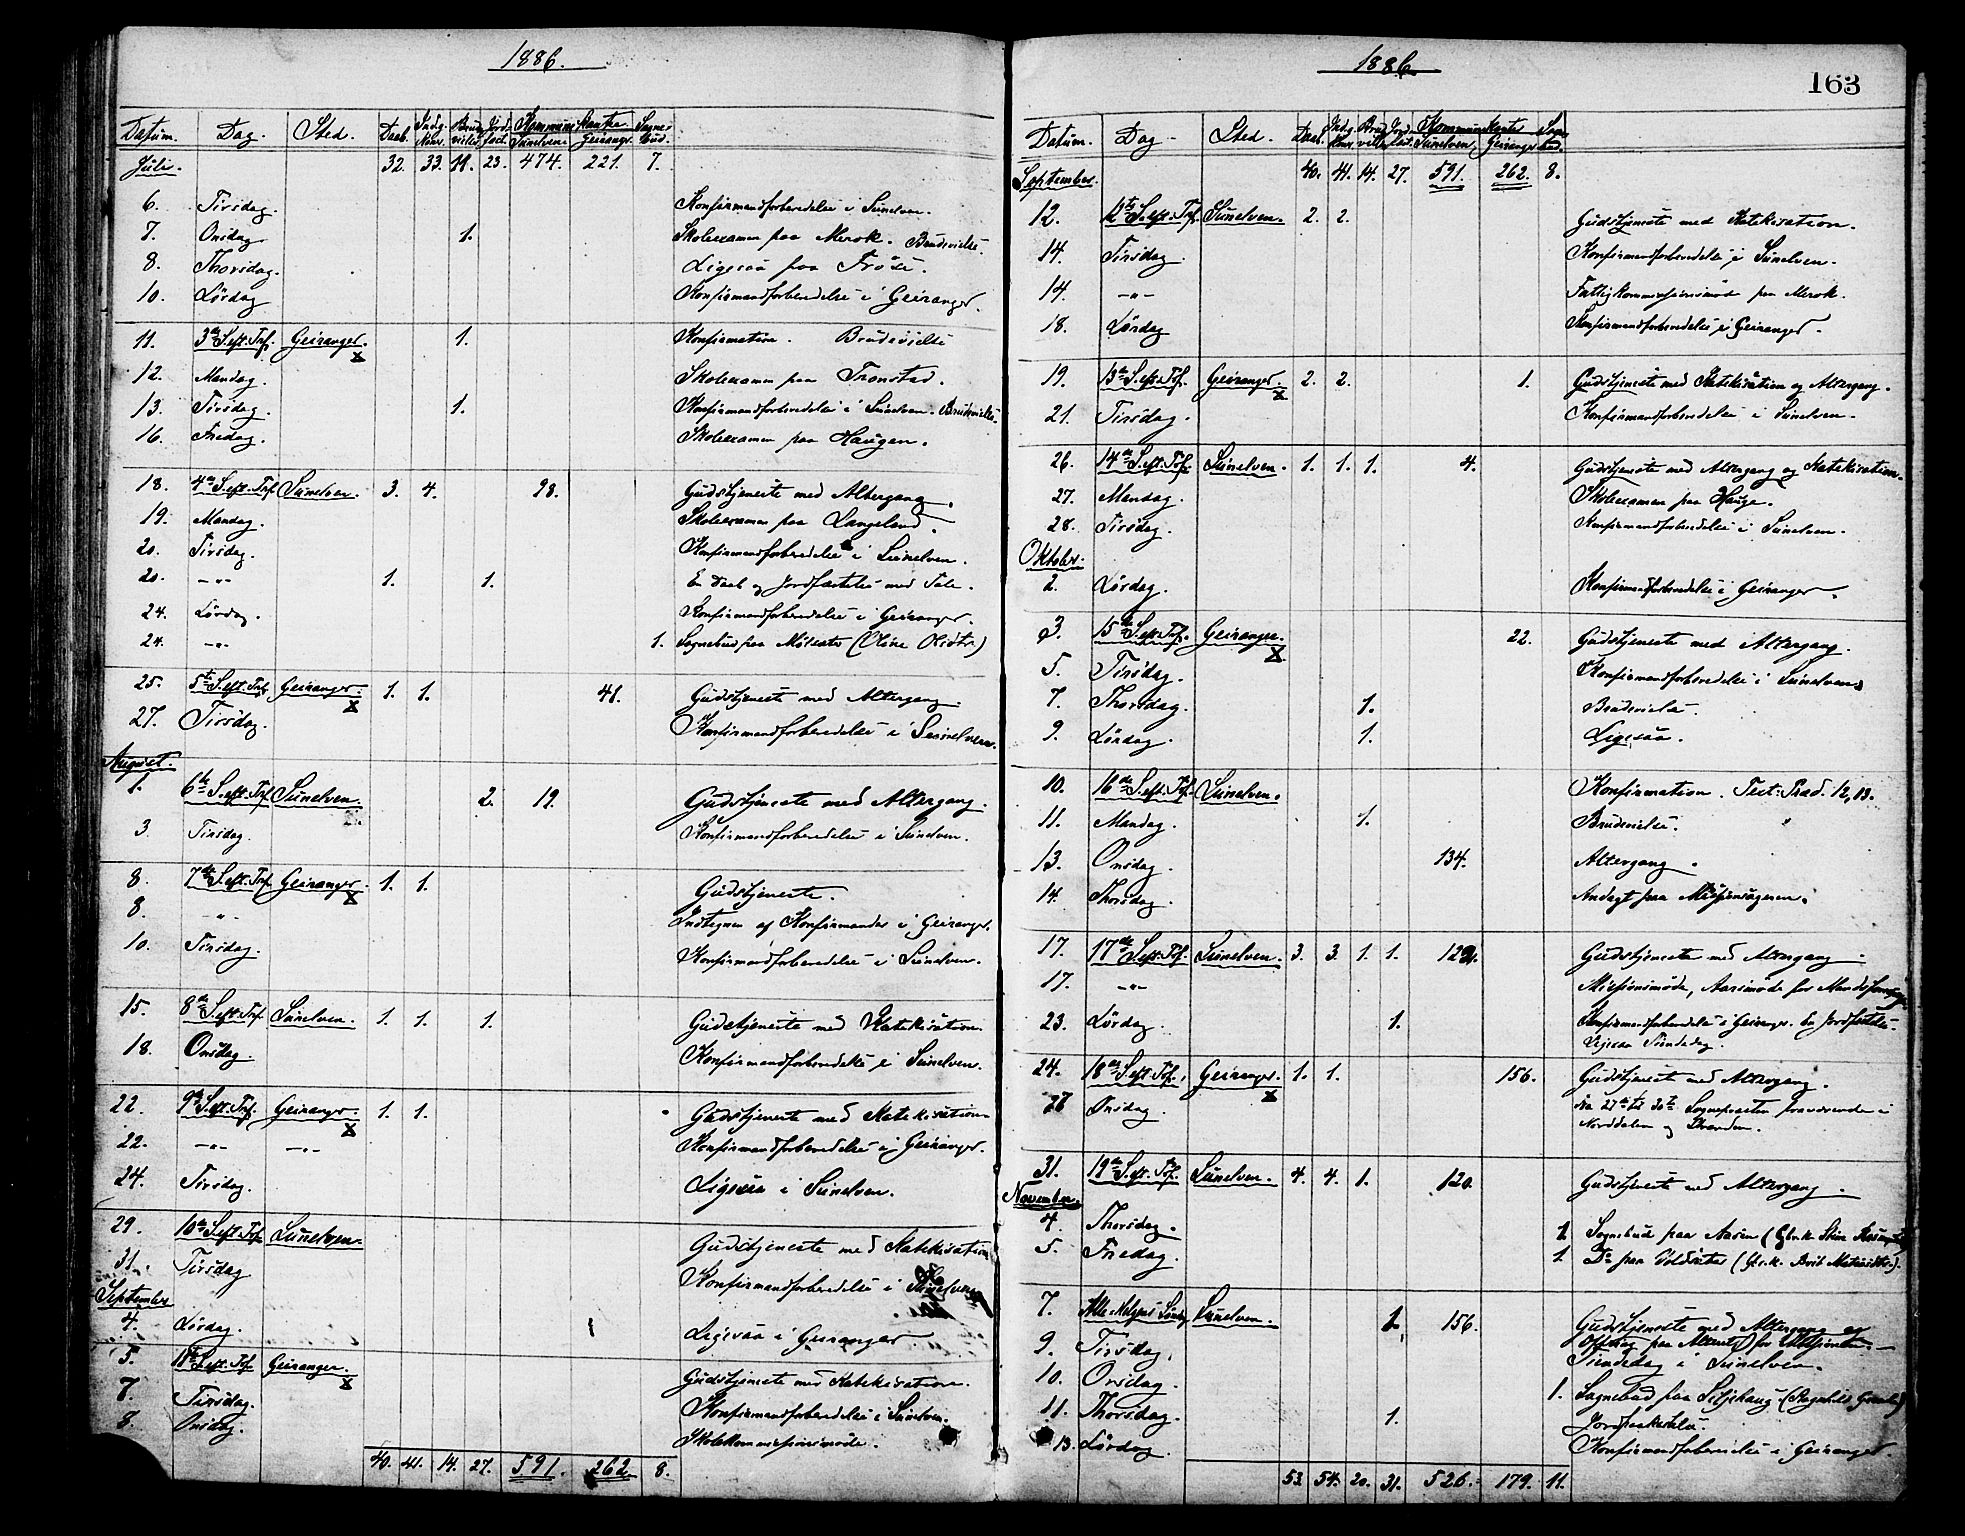 1886.
Datum. Dag. Sted. Daab. Indg. Konr. Brude vielse Jord fæst. Kommunikanter Sunelven. Geiranger. Sogne bud.
Juli. 32. 33. 11. 23. 474. 221. 7.
6. Tirsdag. Konfirmandforberedelse i Sunelven.
7. Onsdag 1. Skolexamen paa Merok. Brudevielse.
8. Thorsdag. Ligesaa paa
10. Lørdag Konfirmandforberedelse i Geiranger.
11. 3die S. eft. Trf. Geiranger. X 1. Konfirmation. Brudevielse
12. Mandag. Skolexamen paa Tronstad.
13. Tirsdag. 1. Konfirmandforberedelse i Sunelven. Brudevielse.
16. Fredag. Skolexamen paa Haugen.
18. 4de S. eft. Trf. Sunelven. 3. 4. 98. Gudstjeneste med Altergang.
19. Mandag. Skolexamen paa Langeland.
20. Tirsdag. Konfirmandforberedelse i Sunelven.
20. -"- 1. 1. En Daab og Jordfæstelse med Tale.
24. Lørdag. Konfirmandforberedelse i Geiranger.
24. -"- 1. Sognebud paa (Oline
25. 5te S. eft. Trf. Geiranger. X 1. 1. 41. Gudstjeneste med Altergang.
27. Tirsdag. Konfirmandforberedelse i Sunelven.
August.
1. 6te S. eft. Trf. Sunelven. 2. 19. Gudstjeneste med Altergang.
3. Tirsdag. Konfirmandforberedelse i Sunelven.
8. 7de S. eft. Trf. Geiranger. X 1. 1. Gudstjeneste.
8. -"- Indtegnen af Konfirmander i Geiranger.
10. Tirsdag. Konfirmandforberedelse i Sunelven.
15. 8de S. eft. Trf. Sunelven. 1. 1. 1. Gudstjeneste med Katekisation.
18. Onsdag. Konfirmandforberedelse i Sunelven.
22. 9de S. eft. Trf. Geiranger. X 1. 1. Gudstjeneste med Katekisation
22. -"- -"- Konfirmandforberedelse i Geiranger.
24. Tirsdag. Ligesaa i Sunelven.
29. 10de S. eft. Trf. Sunelven. Gudstjeneste med Katekisation
31. Tirsdag Konfirmandforberedelse i Sunelven
September
4. Lørdag. Ligesaa i Geiranger.
5. 11te S. eft. Trf. Geiranger. X Gudstjeneste med Katekisation.
7. Tirsdag. Konfirmandforberedelse i Sunelven.
8. Onsdag. Skolekommissionsmøde.
40. 41. 14. 27. 591. 262. 8.
1886.
163
Datum. Dag. Sted. Daab. Indg. Konr. Brudvielse Jordfæst. Kommunikanter Sunelven. Geiranger Sognebud.
September. 40. 41. 14. 27. 591. 262. 8.
12. 12te S. eft. Trf. Sunelven. 2. 2. Gudstjeneste med Katekisation.
14. Tirsdag. Konfirmandforberedelse i Sunelven.
14. -"- Fattigkommissionsmøde paa Merok.
18. Lørdag Konfirmandforberedelse i Geiranger.
19. 13de S. eft. Trf. Geiranger. X 2. 2. 1. Gudstjeneste med Katekisation og Altergang.
21. Tirsdag. Konfirmandforberedelse i Sunelven.
26. 14de S. eft. Trf. Sunelven. 1. 1. 1. 4. Gudstjeneste med Altergang og Katekisation.
27. Mandag. Skolexamen paa Hauge.
28. Tirsdag. Konfirmandforberedelse i Sunelven.
Oktober.
2. Lørdag. Konfirmandforberedelse i Geiranger.
3. 15de S. eft. Trf. Geiranger. X 22. Gudstjeneste med Altergang.
5. Tirsdag. Konfirmandforberedelse i Sunelven.
7. Thorsdag. 1. Brudevielse.
9. Lørdag. 1. Ligesaa.
10. 16de S. eft. Trf. Sunelven. Konfirmation. Text: Præd. 12, 13.
11. Mandag. 1. Brudevielse.
13. Onsdag. 134. Altergang.
14. Thorsdag. Andagt paa
17. 17de S. eft. Trf. Sunelven. 3. 3. 1. 1. Gudstjeneste med Altergang.
17. -"- Missionsmøde, Aarsmøde for
23. Lørdag. 1. Konfirmandforberedelse i Geiranger. En Jordfæstelse.
Ligesaa Tiendedag.
24. 18de S. eft. Trf. Geiranger. X 1. 1. 156. Gudstjeneste med Altergang.
27 Onsdag. Fra 27de til 30te Sognepræsten fraværende i
Norddalen og Stranden.
31. 19de S. eft. Trf. Sunelven. 4. 4. 1. 120. Gudstjeneste med Altergang.
November.
4. Thorsdag. 1 Sognebud paa Aasen
5. Fredag. 1 Do paa
7. Alle Helgens Søndag Sunelven. 1. 156. Gudstjeneste med Altergang og
Offring paa Alteret for Missionen.
9. Tirsdag. Tiendedag i Sunelven.
10. Onsdag. 1. Sognebud paa
11. Thorsdag. 1. Jordpaakastelse.
13. Lørdag. Konfirmandforberedelse i Geiranger.
53. 54. 20. 31. 526. 179. 11.